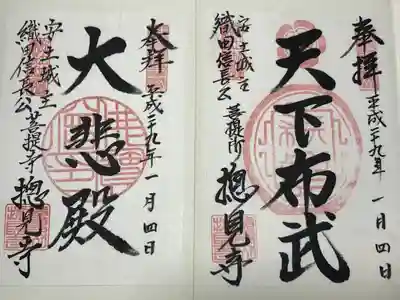 奉拝
平成二十九年 一月四日
天下布武
安土城主
織田信長公 菩提所 摠見寺
奉拝
平成二十九年 一月四日
大悲殿
安土城主
織田信長公 菩提寺 摠見寺